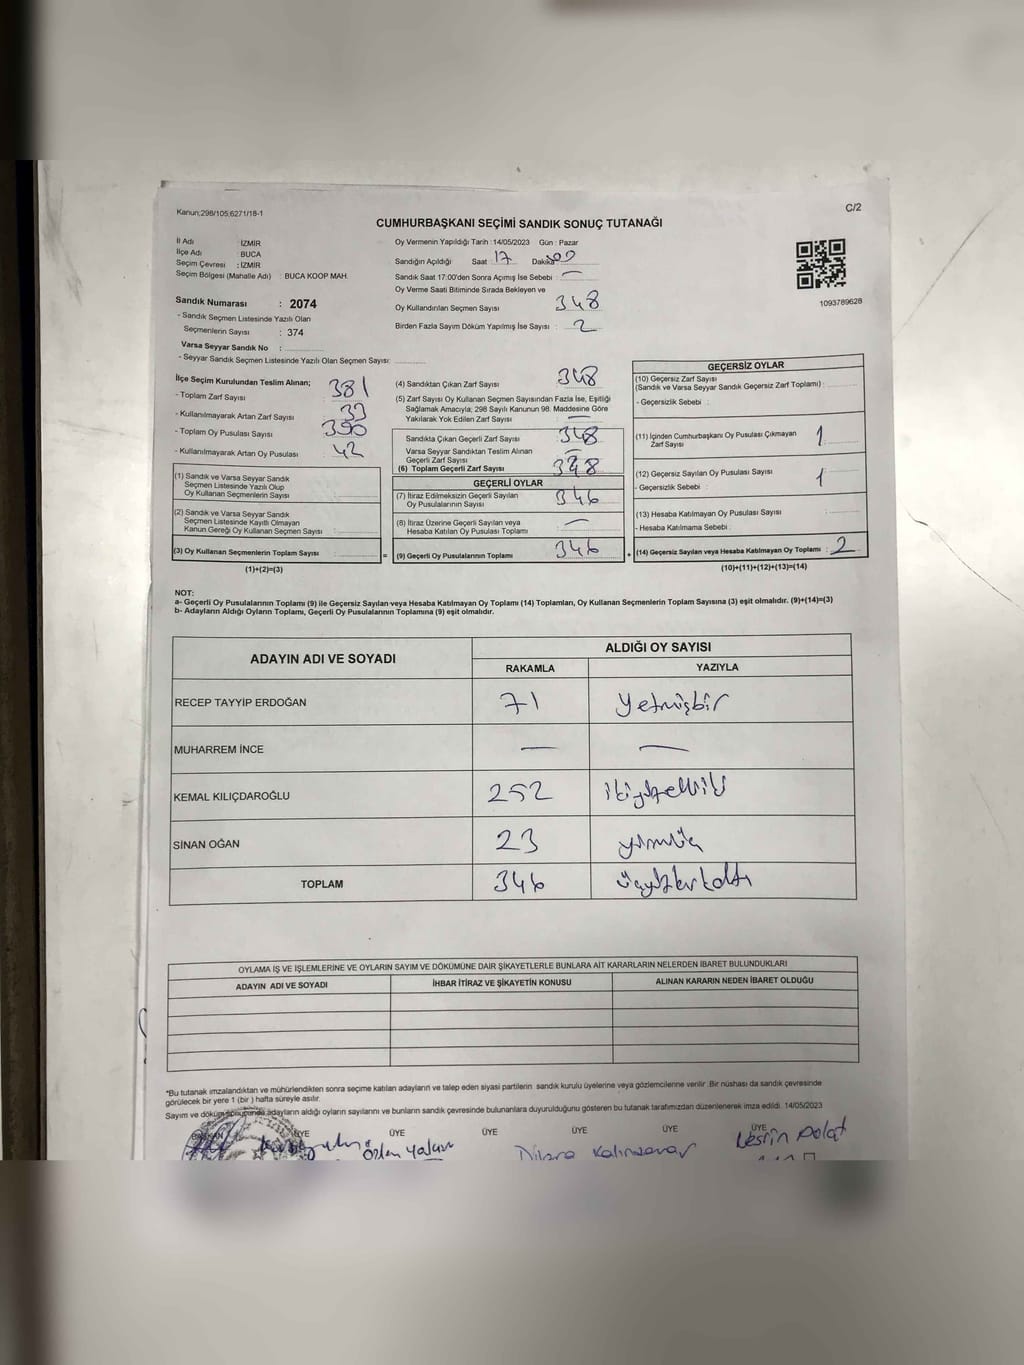 Kanun;298/105;6271/18-1
C/2
CUMHURBAŞKANI SEÇİMİ SANDIK SONUÇ TUTANAĞI
İl Adı : İZMİR
İlçe Adı : BUCA
Seçim Çevresi : İZMİR
Seçim Bölgesi (Mahalle Adı) : BUCA KOOP MAH.
Sandık Numarası : 2074
- Sandık Seçmen Listesinde Yazılı Olan
Seçmenlerin Sayısı : 374
Varsa Seyyar Sandık No :
- Seyyar Sandık Seçmen Listesinde Yazılı Olan Seçmen Sayısı:
Oy Vermenin Yapıldığı Tarih : 14/05/2023 Gün : Pazar
Sandığın Açıldığı Saat 17 Dakika
Sandık Saat 17:00'den Sonra Açımış İse Sebebi : —
Oy Verme Saati Bitiminde Sırada Bekleyen ve
Oy Kullandırılan Seçmen Sayısı 348
Birden Fazla Sayım Döküm Yapılmış İse Sayısı : 2
1093789628
İlçe Seçim Kurulundan Teslim Alınan;
- Toplam Zarf Sayısı 381
- Kullanılmayarak Artan Zarf Sayısı 33
- Toplam Oy Pusulası Sayısı 390
- Kullanılmayarak Artan Oy Pusulası 42
(1) Sandık ve Varsa Seyyar Sandık
Seçmen Listesinde Yazılı Olup
Oy Kullanan Seçmenlerin Sayısı
(2) Sandık ve Varsa Seyyar Sandık
Seçmen Listesinde Kayıtlı Olmayan
Kanun Gereği Oy Kullanan Seçmen Sayısı :
(3) Oy Kullanan Seçmenlerin Toplam Sayısı : =
(1)+(2)=(3)
(4) Sandıktan Çıkan Zarf Sayısı 348
(5) Zarf Sayısı Oy Kullanan Seçmen Sayısından Fazla İse, Eşitliği
Sağlamak Amacıyla; 298 Sayılı Kanunun 98. Maddesine Göre
Yakılarak Yok Edilen Zarf Sayısı : —
Sandıkta Çıkan Geçerli Zarf Sayısı 348
Varsa Seyyar Sandıktan Teslim Alınan
Geçerli Zarf Sayısı —
(6) Toplam Geçerli Zarf Sayısı 348
GEÇERLİ OYLAR
(7) İtiraz Edilmeksizin Geçerli Sayılan
Oy Pusulalarının Sayısı 346
(8) İtiraz Üzerine Geçerli Sayılan veya
Hesaba Katılan Oy Pusulası Toplamı —
(9) Geçerli Oy Pusulalarının Toplamı 346 +
GEÇERSİZ OYLAR
(10) Geçersiz Zarf Sayısı
(Sandık ve Varsa Seyyar Sandık Geçersiz Zarf Toplamı) :
- Geçersizlik Sebebi :
(11) İçinden Cumhurbaşkanı Oy Pusulası Çıkmayan
Zarf Sayısı 1
(12) Geçersiz Sayılan Oy Pusulası Sayısı 1
- Geçersizlik Sebebi :
(13) Hesaba Katılmayan Oy Pusulası Sayısı
- Hesaba Katılmama Sebebi :
(14) Geçersiz Sayılan veya Hesaba Katılmayan Oy Toplamı : 2
(10)+(11)+(12)+(13)=(14)
NOT:
a- Geçerli Oy Pusulalarının Toplamı (9) ile Geçersiz Sayılan veya Hesaba Katılmayan Oy Toplamı (14) Toplamları, Oy Kullanan Seçmenlerin Toplam Sayısına (3) eşit olmalıdır. (9)+(14)=(3)
b- Adayların Aldığı Oyların Toplamı, Geçerli Oy Pusulalarının Toplamına (9) eşit olmalıdır.
ADAYIN ADI VE SOYADI
ALDIĞI OY SAYISI
RAKAMLA YAZIYLA
RECEP TAYYİP ERDOĞAN 71 yetmişbir
MUHARREM İNCE — —
KEMAL KILIÇDAROĞLU 252 ikiyüzelliiki
SİNAN OĞAN 23 yirmiüç
TOPLAM 346 üçyüzkırkaltı
OYLAMA İŞ VE İŞLEMLERİNE VE OYLARIN SAYIM VE DÖKÜMÜNE DAİR ŞİKAYETLERLE BUNLARA AİT KARARLARIN NELERDEN İBARET BULUNDUKLARI
ADAYIN ADI VE SOYADI İHBAR İTİRAZ VE ŞİKAYETİN KONUSU ALINAN KARARIN NEDEN İBARET OLDUĞU
*Bu tutanak imzalandıktan ve mühürlendikten sonra seçime katılan adayların ve talep eden siyasi partilerin sandık kurulu üyelerine veya gözlemcilerine verilir. Bir nüshası da sandık çevresinde
görülecek bir yere 1 (bir ) hafta süreyle asılır.
Sayım ve döküm sonucunda adayların aldığı oyların sayılarını ve bunların sandık çevresinde bulunanlara duyurulduğunu gösteren bu tutanak tarafımızdan düzenlenerek imza edildi. 14/05/2023
BAŞKAN ÜYE ÜYE ÜYE ÜYE ÜYE ÜYE
Özlem Yalçın Dilara Nesrin Polat